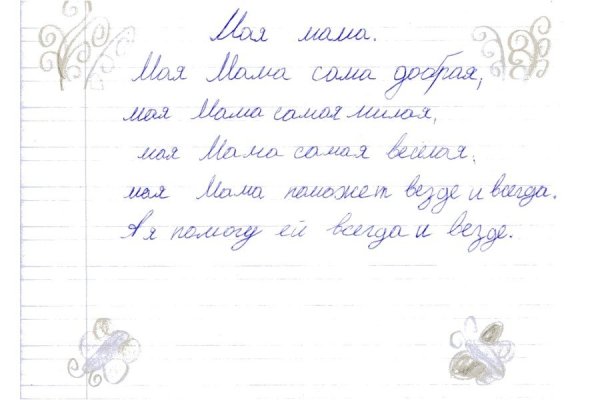 Моя мама.
Моя Мама сама добрая,
моя Мама самая милая,
моя Мама самая веселая,
моя Мама поможет везде и всегда.
А я помогу ей всегда и везде.